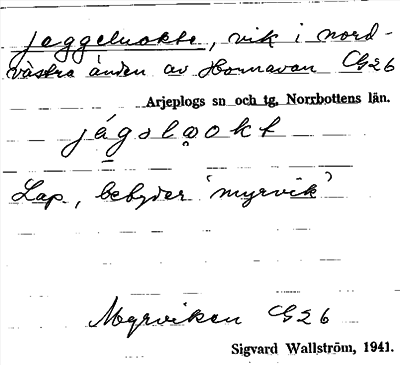 jeggeluokte, vik i nord-
västra änden av Hornavan G26
Arjeplogs sn och tg, Norrbottens län.
Lap., betyder 'myrvik'
Myrviken G26
Sigvard Wallström, 1941.